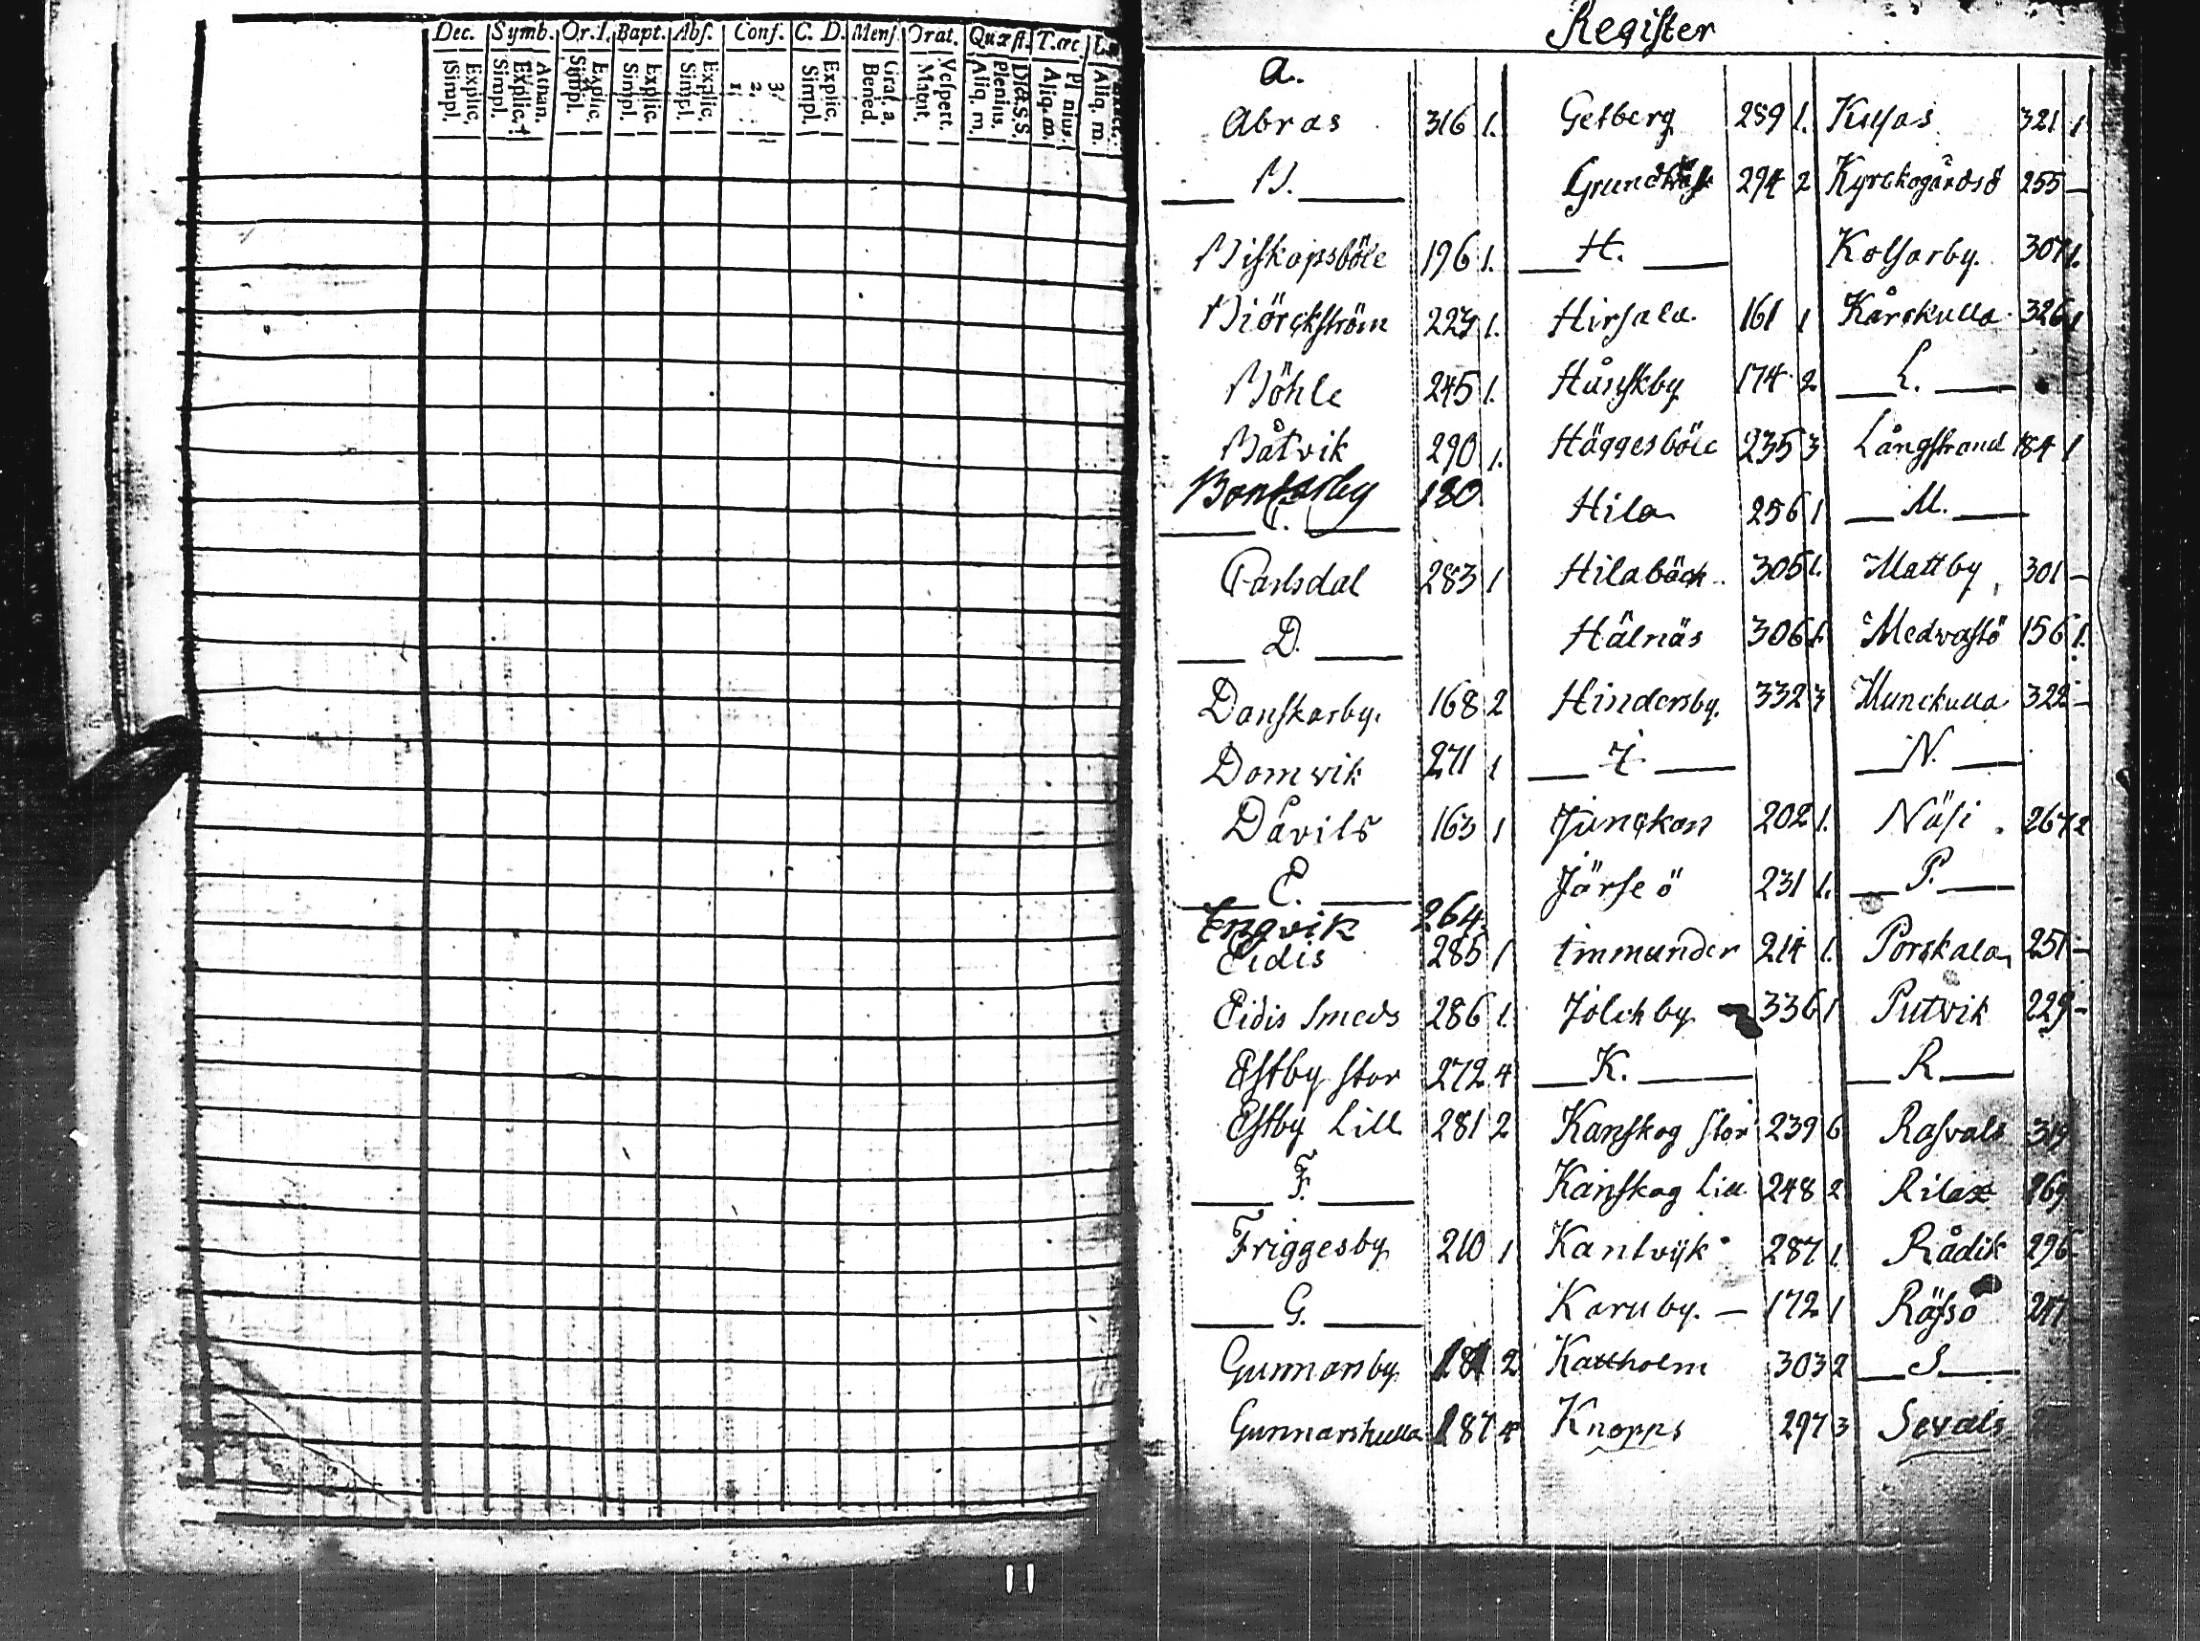 Dec. Symb. Or. D. Bapt. Abs. Conf. C. D. Mens. Orat. Quæst. T. œc.
Explic. Simpl.
Athan. Explic. Simpl.
Explic. Simpl.
Explic. Simpl.
Explic. Simpl.
3. 2. 1.
Explic. Simpl.
Grat. a. Bened.
Vespert. Matut.
Dict. S.S. Plenius. Aliq. m.
Plenius. Aliq. m.
Aliq. m.
Register
A.
Abras 316 1.
B.
Biskopsböle 196 1.
Biörckström 223 1.
Böhle 245 1.
Båtvik 290 1.
Bonsarby 180
C.
Carlsdal 283 1
D.
Danskarby. 168 2
Domvik 271 1
Dåvils 163 1
E.
Engvik 264
Eidis 285 1
Eidis Smeds 286 1.
Estby stor 272 4
Estby Lill 281 2
F.
Friggesby 210 1
G.
Gunnarsby 181 2
Gunnarskulla 187 4
Getberg 289 1.
294 2
H.
Hirsala. 161 1
Hånskby 174 2
Häggesböle 235 3
Hila 256 1
Hilabäck. 305 1.
Hälnäs 306 1.
Hindersby. 332 3
I.
Junckan 202 1.
Järseö 231 1.
Immunder 214 1.
Jolckby 336 1
K.
Kanskog stor 239 6
Kanskog Lill 248 2
Kantvijk 287 1.
Karuby. — 172 1
Kattholm 303 2
Knopps 297 3
321 1
Kyrckogårdsö 255 —
Kolsarby. 307 1.
Kårskulla. 326 1
L.
Långstrand 184 1
M.
Mattby 301 —
Medvastö 156 1.
Munckulla 322 —
N.
Näsi. 267 2
P.
Porskala 251 —
Putvik 229 —
R
Rasvals 319
Rilax 269
Rådik 296
Räfsö 247
S
Sevals
11